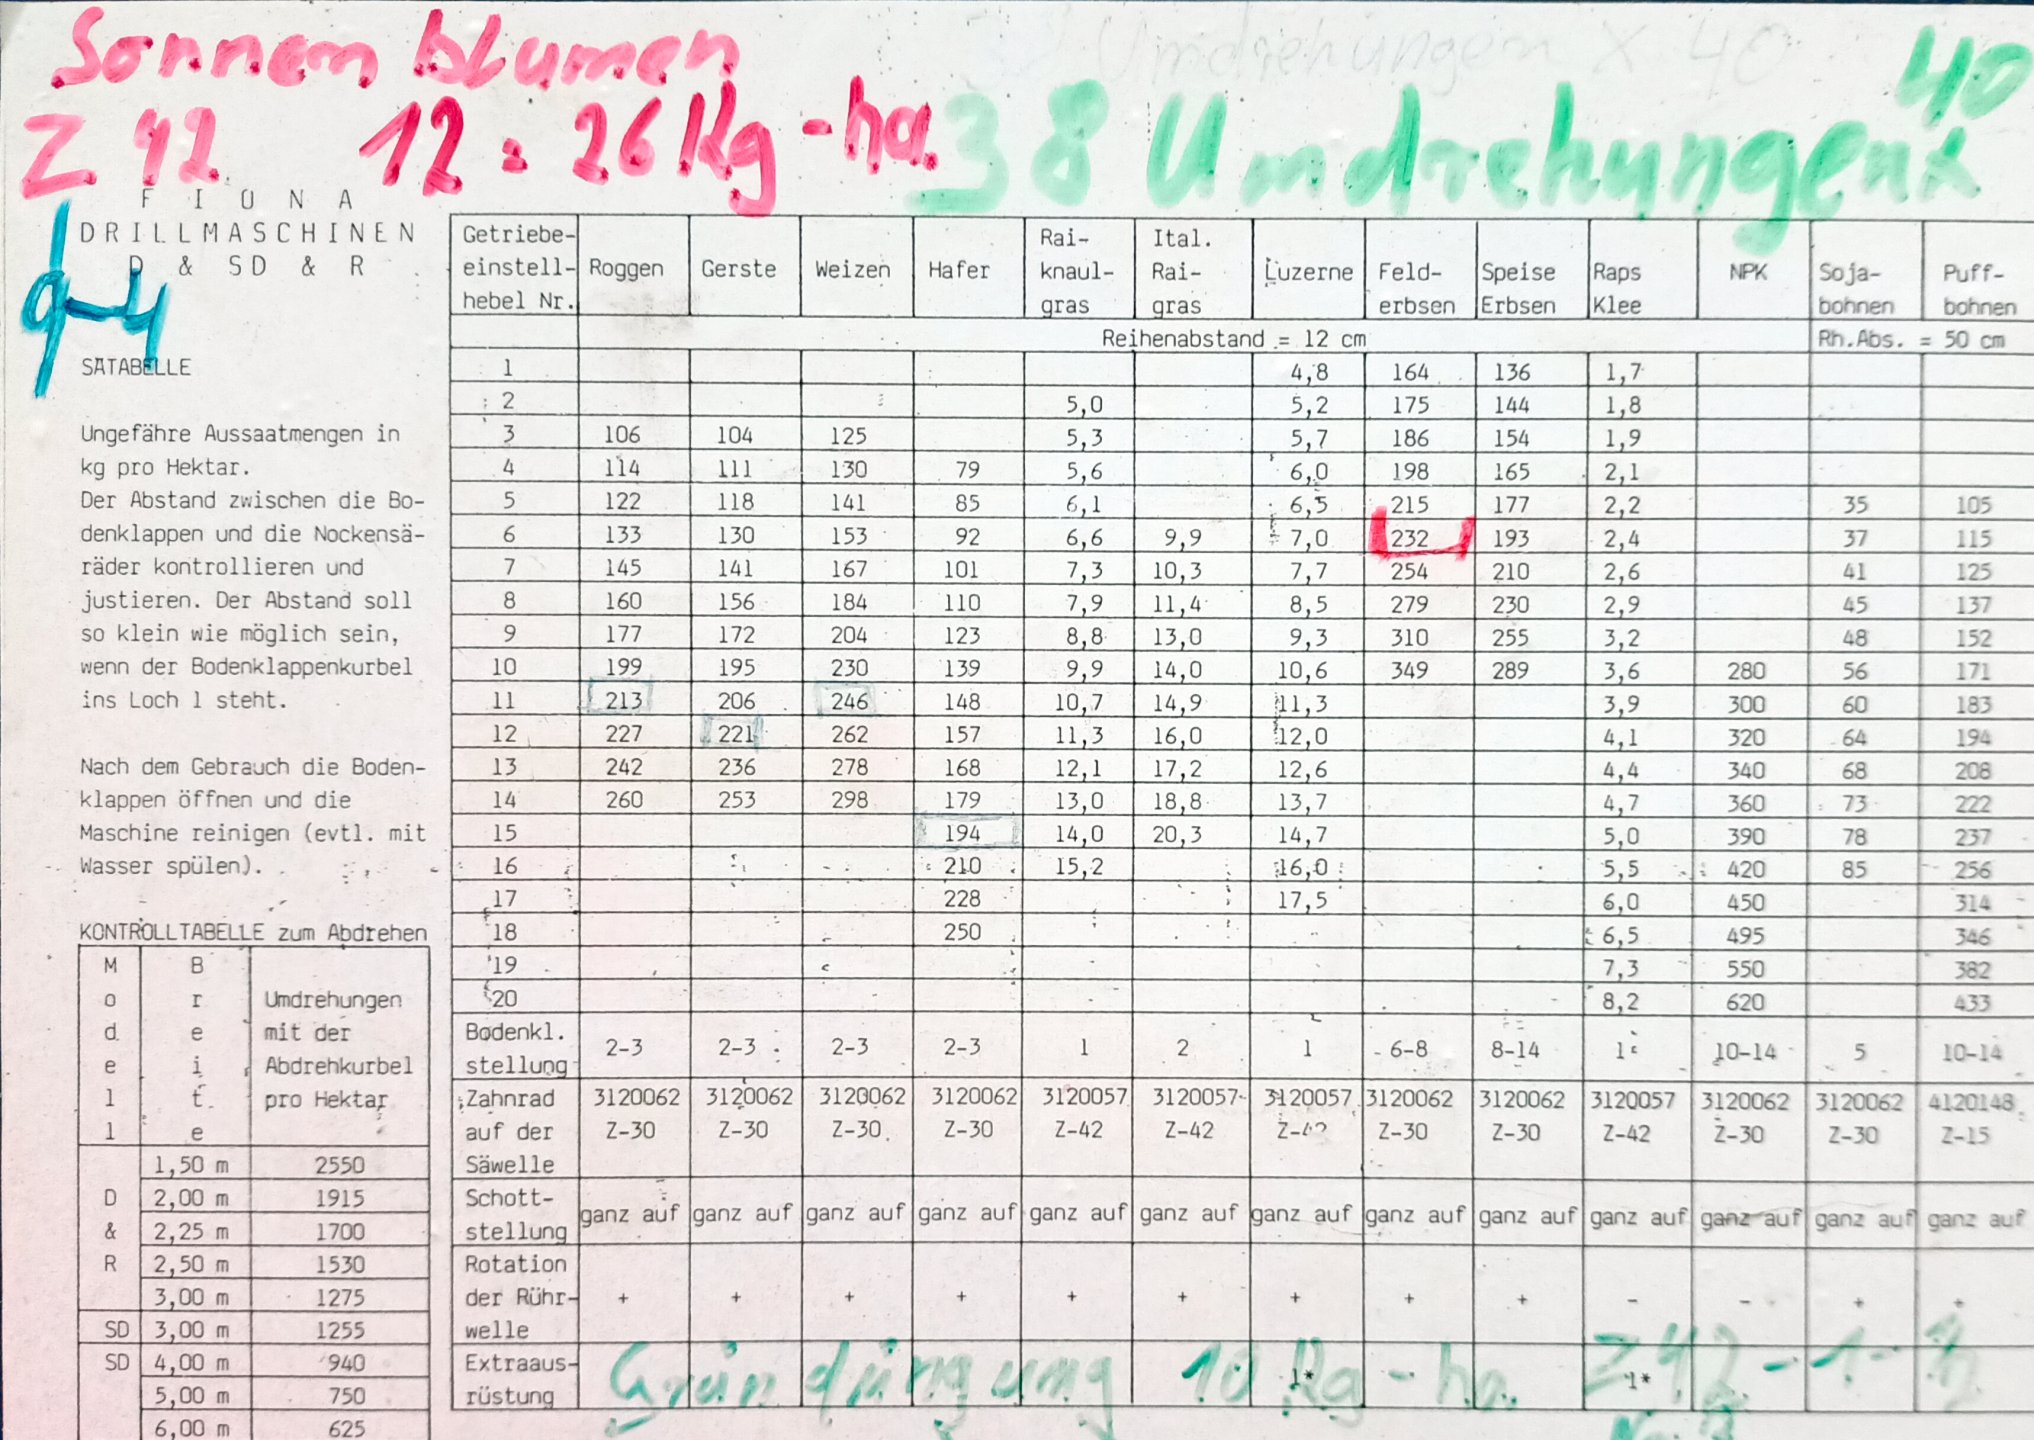 Sonnen blumen
Z 42 12 = 26 Kg - ha.
38 Umdrehungen x 40
Umdrehungen x 40
FIONA
DRILLMASCHINEN
D & SD & R
SÄTABELLE
Ungefähre Aussaatmengen in
kg pro Hektar.
Der Abstand zwischen die Bo-
denklappen und die Nockensä-
räder kontrollieren und
justieren. Der Abstand soll
so klein wie möglich sein,
wenn der Bodenklappenkurbel
ins Loch 1 steht.
Nach dem Gebrauch die Boden-
klappen öffnen und die
Maschine reinigen (evtl. mit
Wasser spülen).
KONTROLLTABELLE zum Abdrehen
Modell Breite Umdrehungen
mit der
Abdrehkurbel
pro Hektar
1,50 m 2550
D 2,00 m 1915
& 2,25 m 1700
R 2,50 m 1530
3,00 m 1275
SD 3,00 m 1255
SD 4,00 m 940
5,00 m 750
6,00 m 625
Getriebe- Rai- Ital.
einstell- Roggen Gerste Weizen Hafer knaul- Rai- Luzerne Feld- Speise Raps NPK Soja- Puff-
hebel Nr. gras gras erbsen Erbsen Klee bohnen bohnen
Reihenabstand = 12 cm Rh.Abs. = 50 cm
1 4,8 164 136 1,7
2 5,0 5,2 175 144 1,8
3 106 104 125 5,3 5,7 186 154 1,9
4 114 111 130 79 5,6 6,0 198 165 2,1
5 122 118 141 85 6,1 6,5 215 177 2,2 35 105
6 133 130 153 92 6,6 9,9 7,0 232 193 2,4 37 115
7 145 141 167 101 7,3 10,3 7,7 254 210 2,6 41 125
8 160 156 184 110 7,9 11,4 8,5 279 230 2,9 45 137
9 177 172 204 123 8,8 13,0 9,3 310 255 3,2 48 152
10 199 195 230 139 9,9 14,0 10,6 349 289 3,6 280 56 171
11 213 206 246 148 10,7 14,9 11,3 3,9 300 60 183
12 227 221 262 157 11,3 16,0 12,0 4,1 320 64 194
13 242 236 278 168 12,1 17,2 12,6 4,4 340 68 208
14 260 253 298 179 13,0 18,8 13,7 4,7 360 73 222
15 194 14,0 20,3 14,7 5,0 390 78 237
16 210 15,2 16,0 5,5 420 85 256
17 228 17,5 6,0 450 314
18 250 6,5 495 346
19 7,3 550 382
20 8,2 620 433
Bodenkl.
stellung 2-3 2-3 2-3 2-3 1 2 1 6-8 8-14 1 10-14 5 10-14
Zahnrad 3120062 3120062 3120062 3120062 3120057 3120057 3120057 3120062 3120062 3120057 3120062 3120062 4120148
auf der Z-30 Z-30 Z-30 Z-30 Z-42 Z-42 Z-42 Z-30 Z-30 Z-42 Z-30 Z-30 Z-15
Säwelle
Schott-
stellung ganz auf ganz auf ganz auf ganz auf ganz auf ganz auf ganz auf ganz auf ganz auf ganz auf ganz auf ganz auf ganz auf
Rotation
der Rühr- + + + + + + + + + - - + +
welle
Extraaus-
rüstung 1* 1*
Gründüngung 10 Kg - ha. Z 42 - 1 -